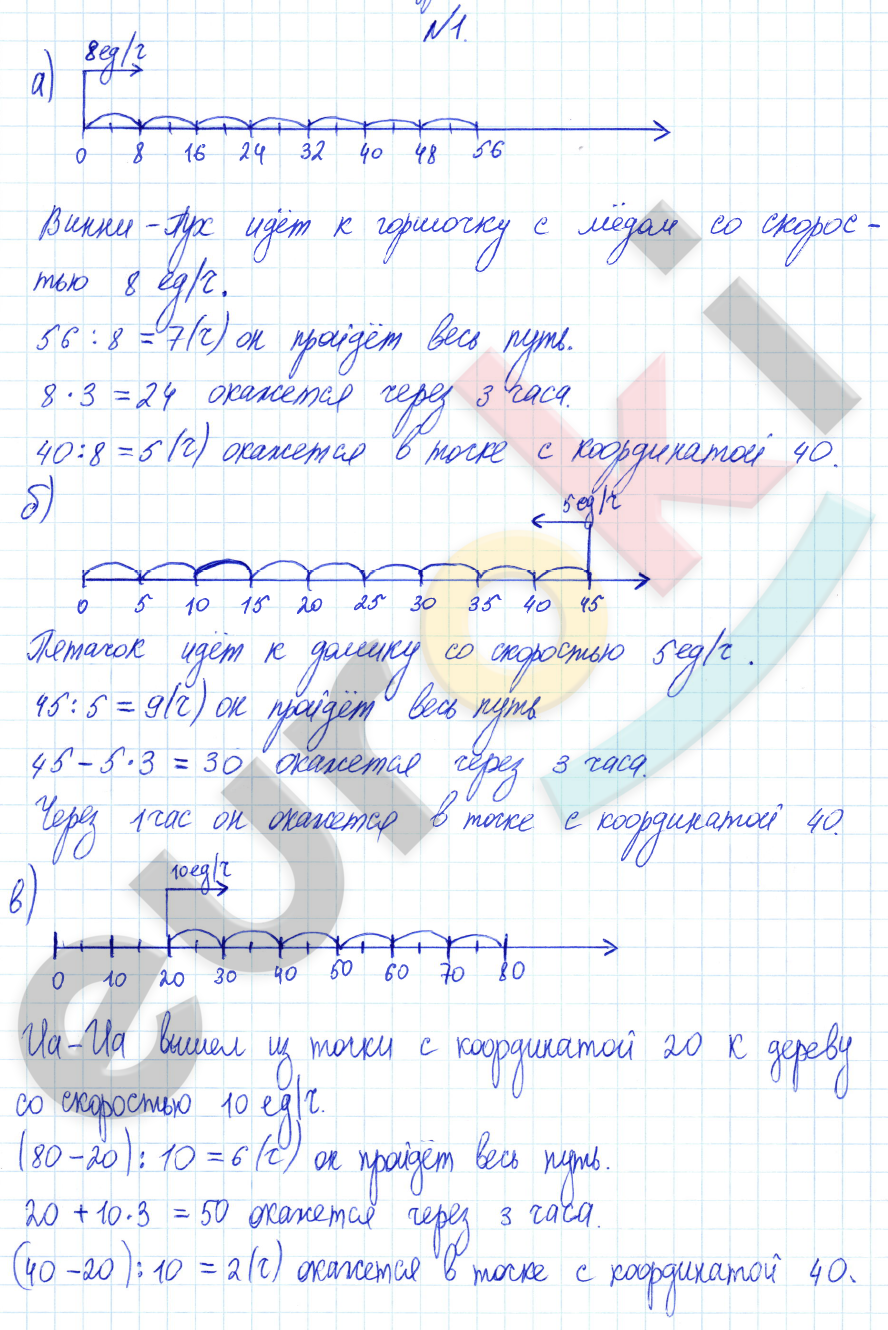 №1.
а)
8ед/ч
0 8 16 24 32 40 48 56
Винни-Пух идёт к горшочку с мёдом со скорос-
тью 8 ед/ч.
56 : 8 = 7(ч) он пройдёт весь путь.
8 · 3 = 24 окажется через 3 часа.
40 : 8 = 5 (ч) окажется в точке с координатой 40.
б)
5ед/ч
0 5 10 15 20 25 30 35 40 45
Петачок идёт к домику со скоростью 5ед/ч.
45 : 5 = 9(ч) он пройдёт весь путь
45 - 5 · 3 = 30 окажется через 3 часа.
Через 1час он окажется в точке с координатой 40.
в)
10ед/ч
0 10 20 30 40 50 60 70 80
Иа-Иа вышел из точки с координатой 20 к дереву
со скоростью 10 ед/ч.
(80 - 20) : 10 = 6 (ч) он пройдёт весь путь.
20 + 10 · 3 = 50 окажется через 3 часа.
(40 - 20) : 10 = 2(ч) окажется в точке с координатой 40.
euroki